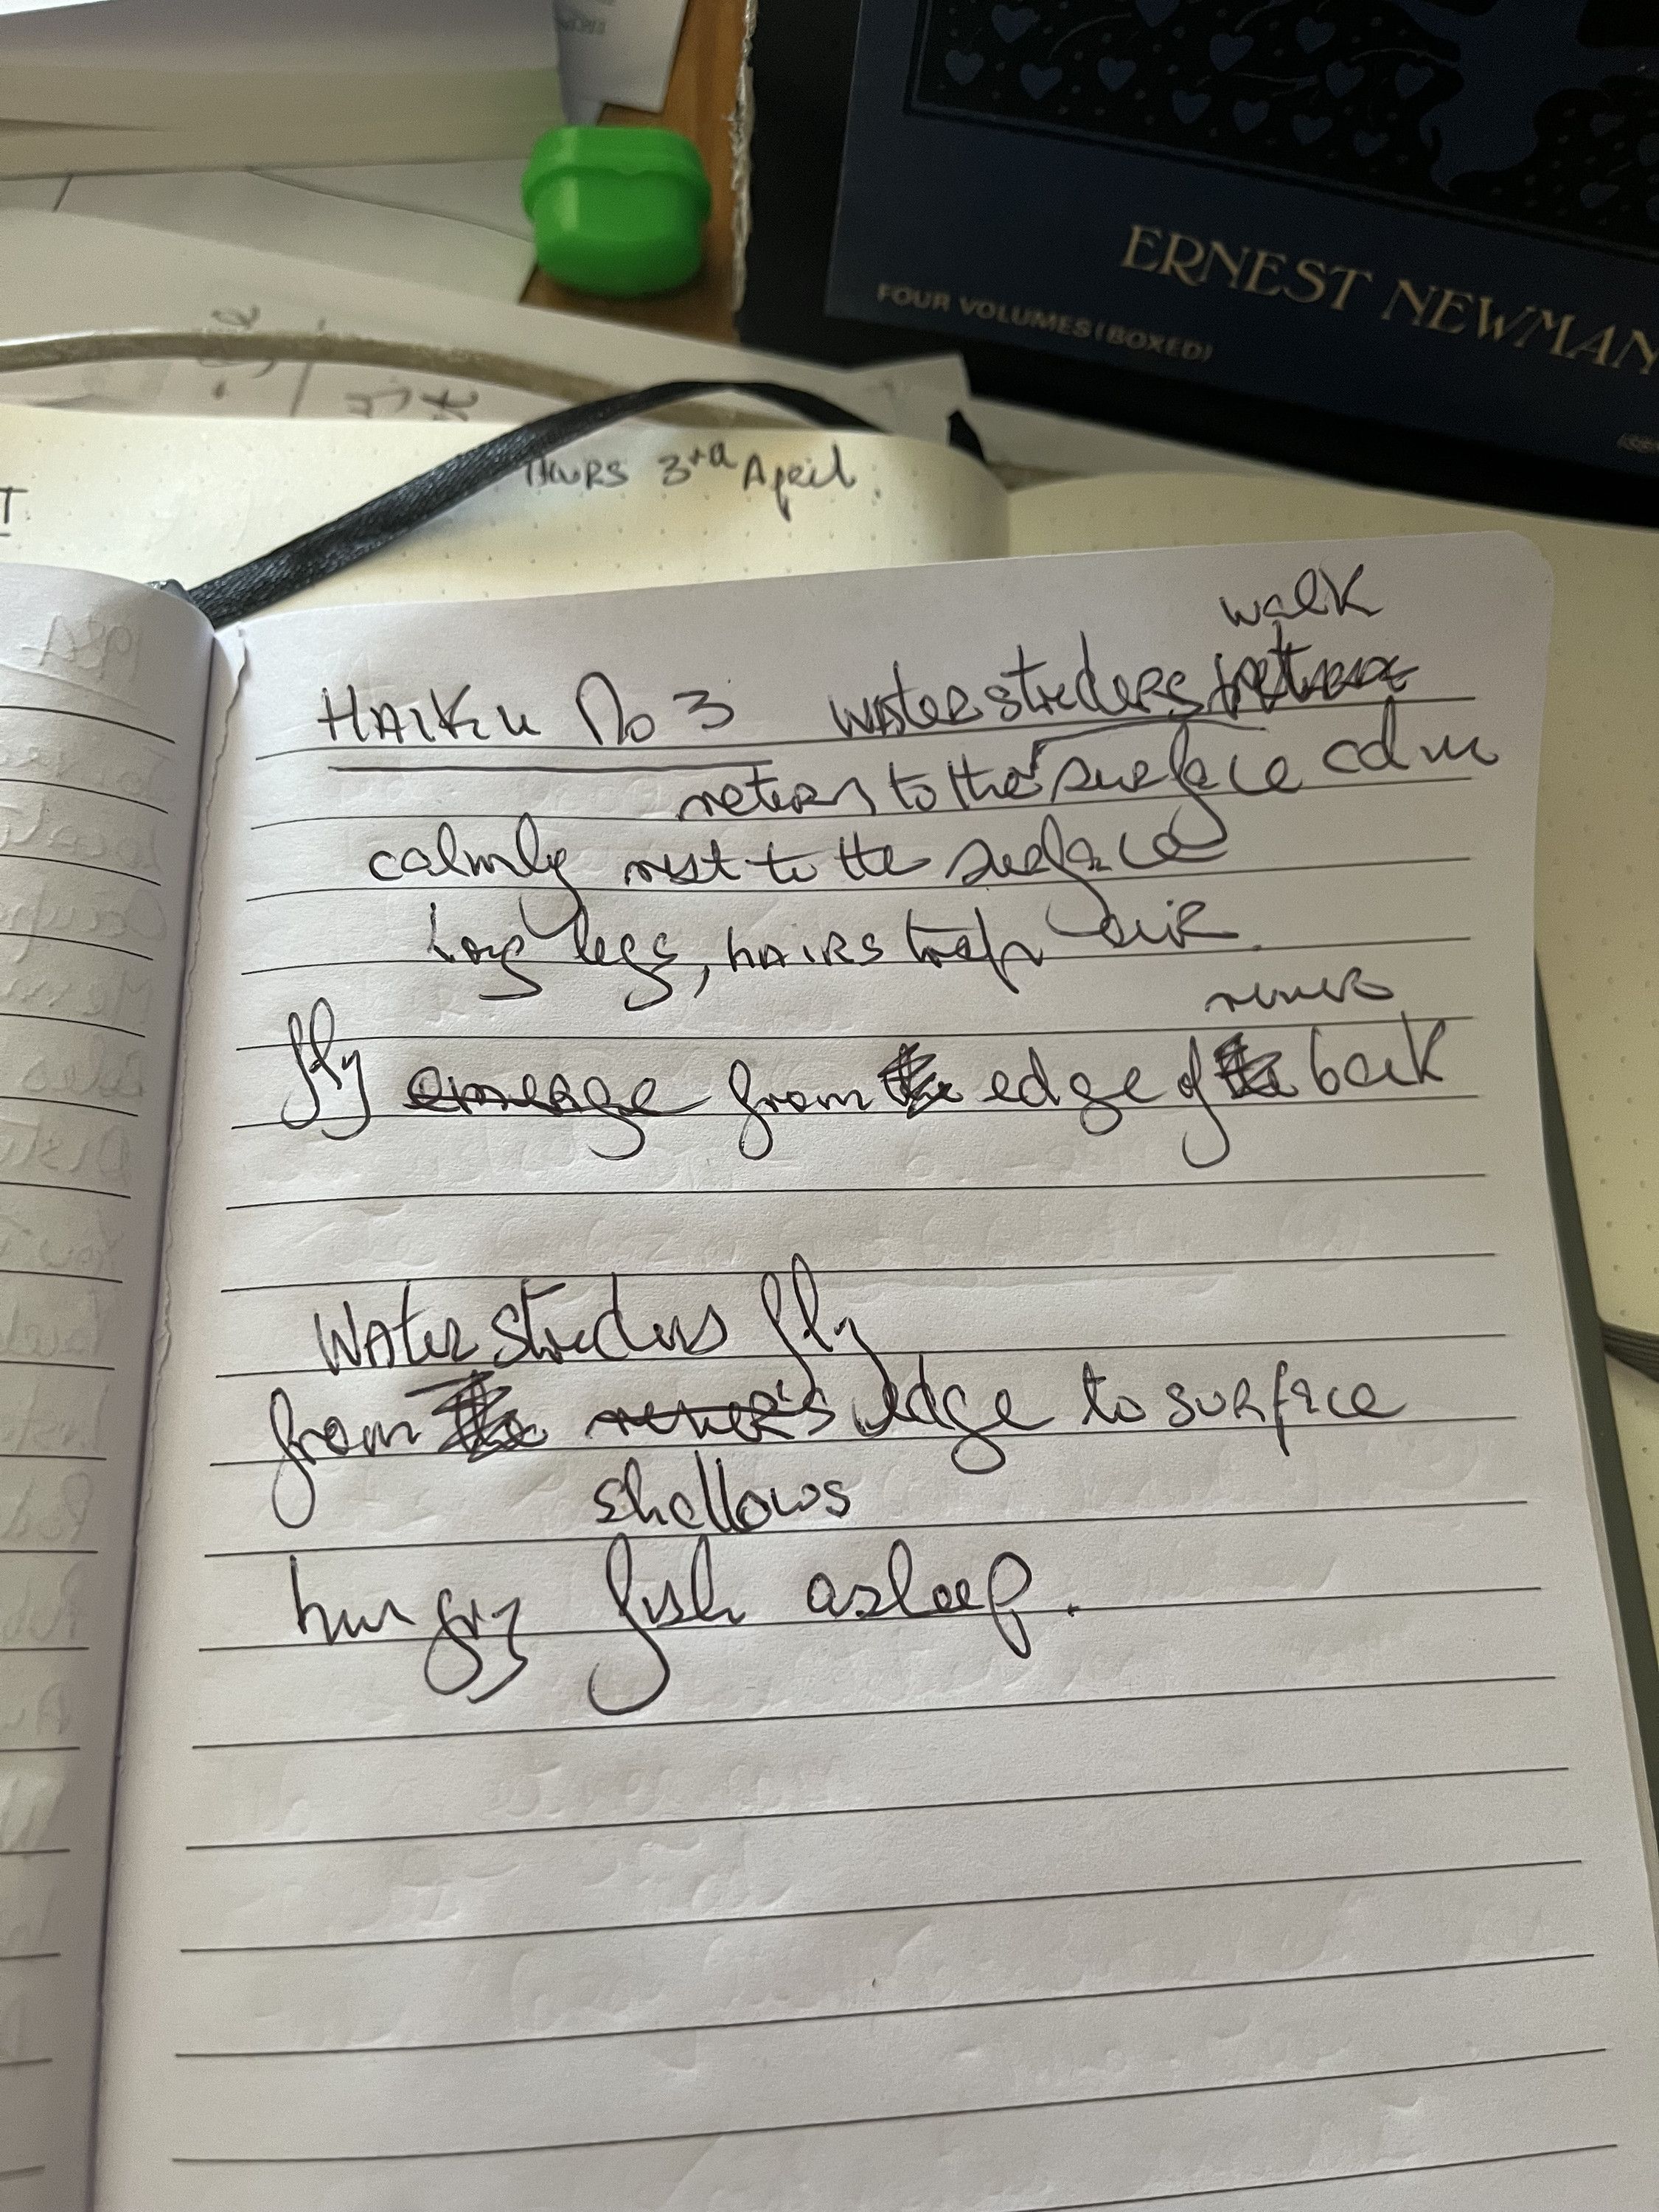 ERNEST NEWMAN
FOUR VOLUMES (BOXED)
THURS 3rd April.
walk
HAIKU No 3 WATER striders
return to the surface calm
calmly rest to the surface
long legs, HAIRS trap air.
rivers
fly emerge from the edge of the bank
WATER Striders fly
from the river's edge to surface
shallows
hungry fish asleep.